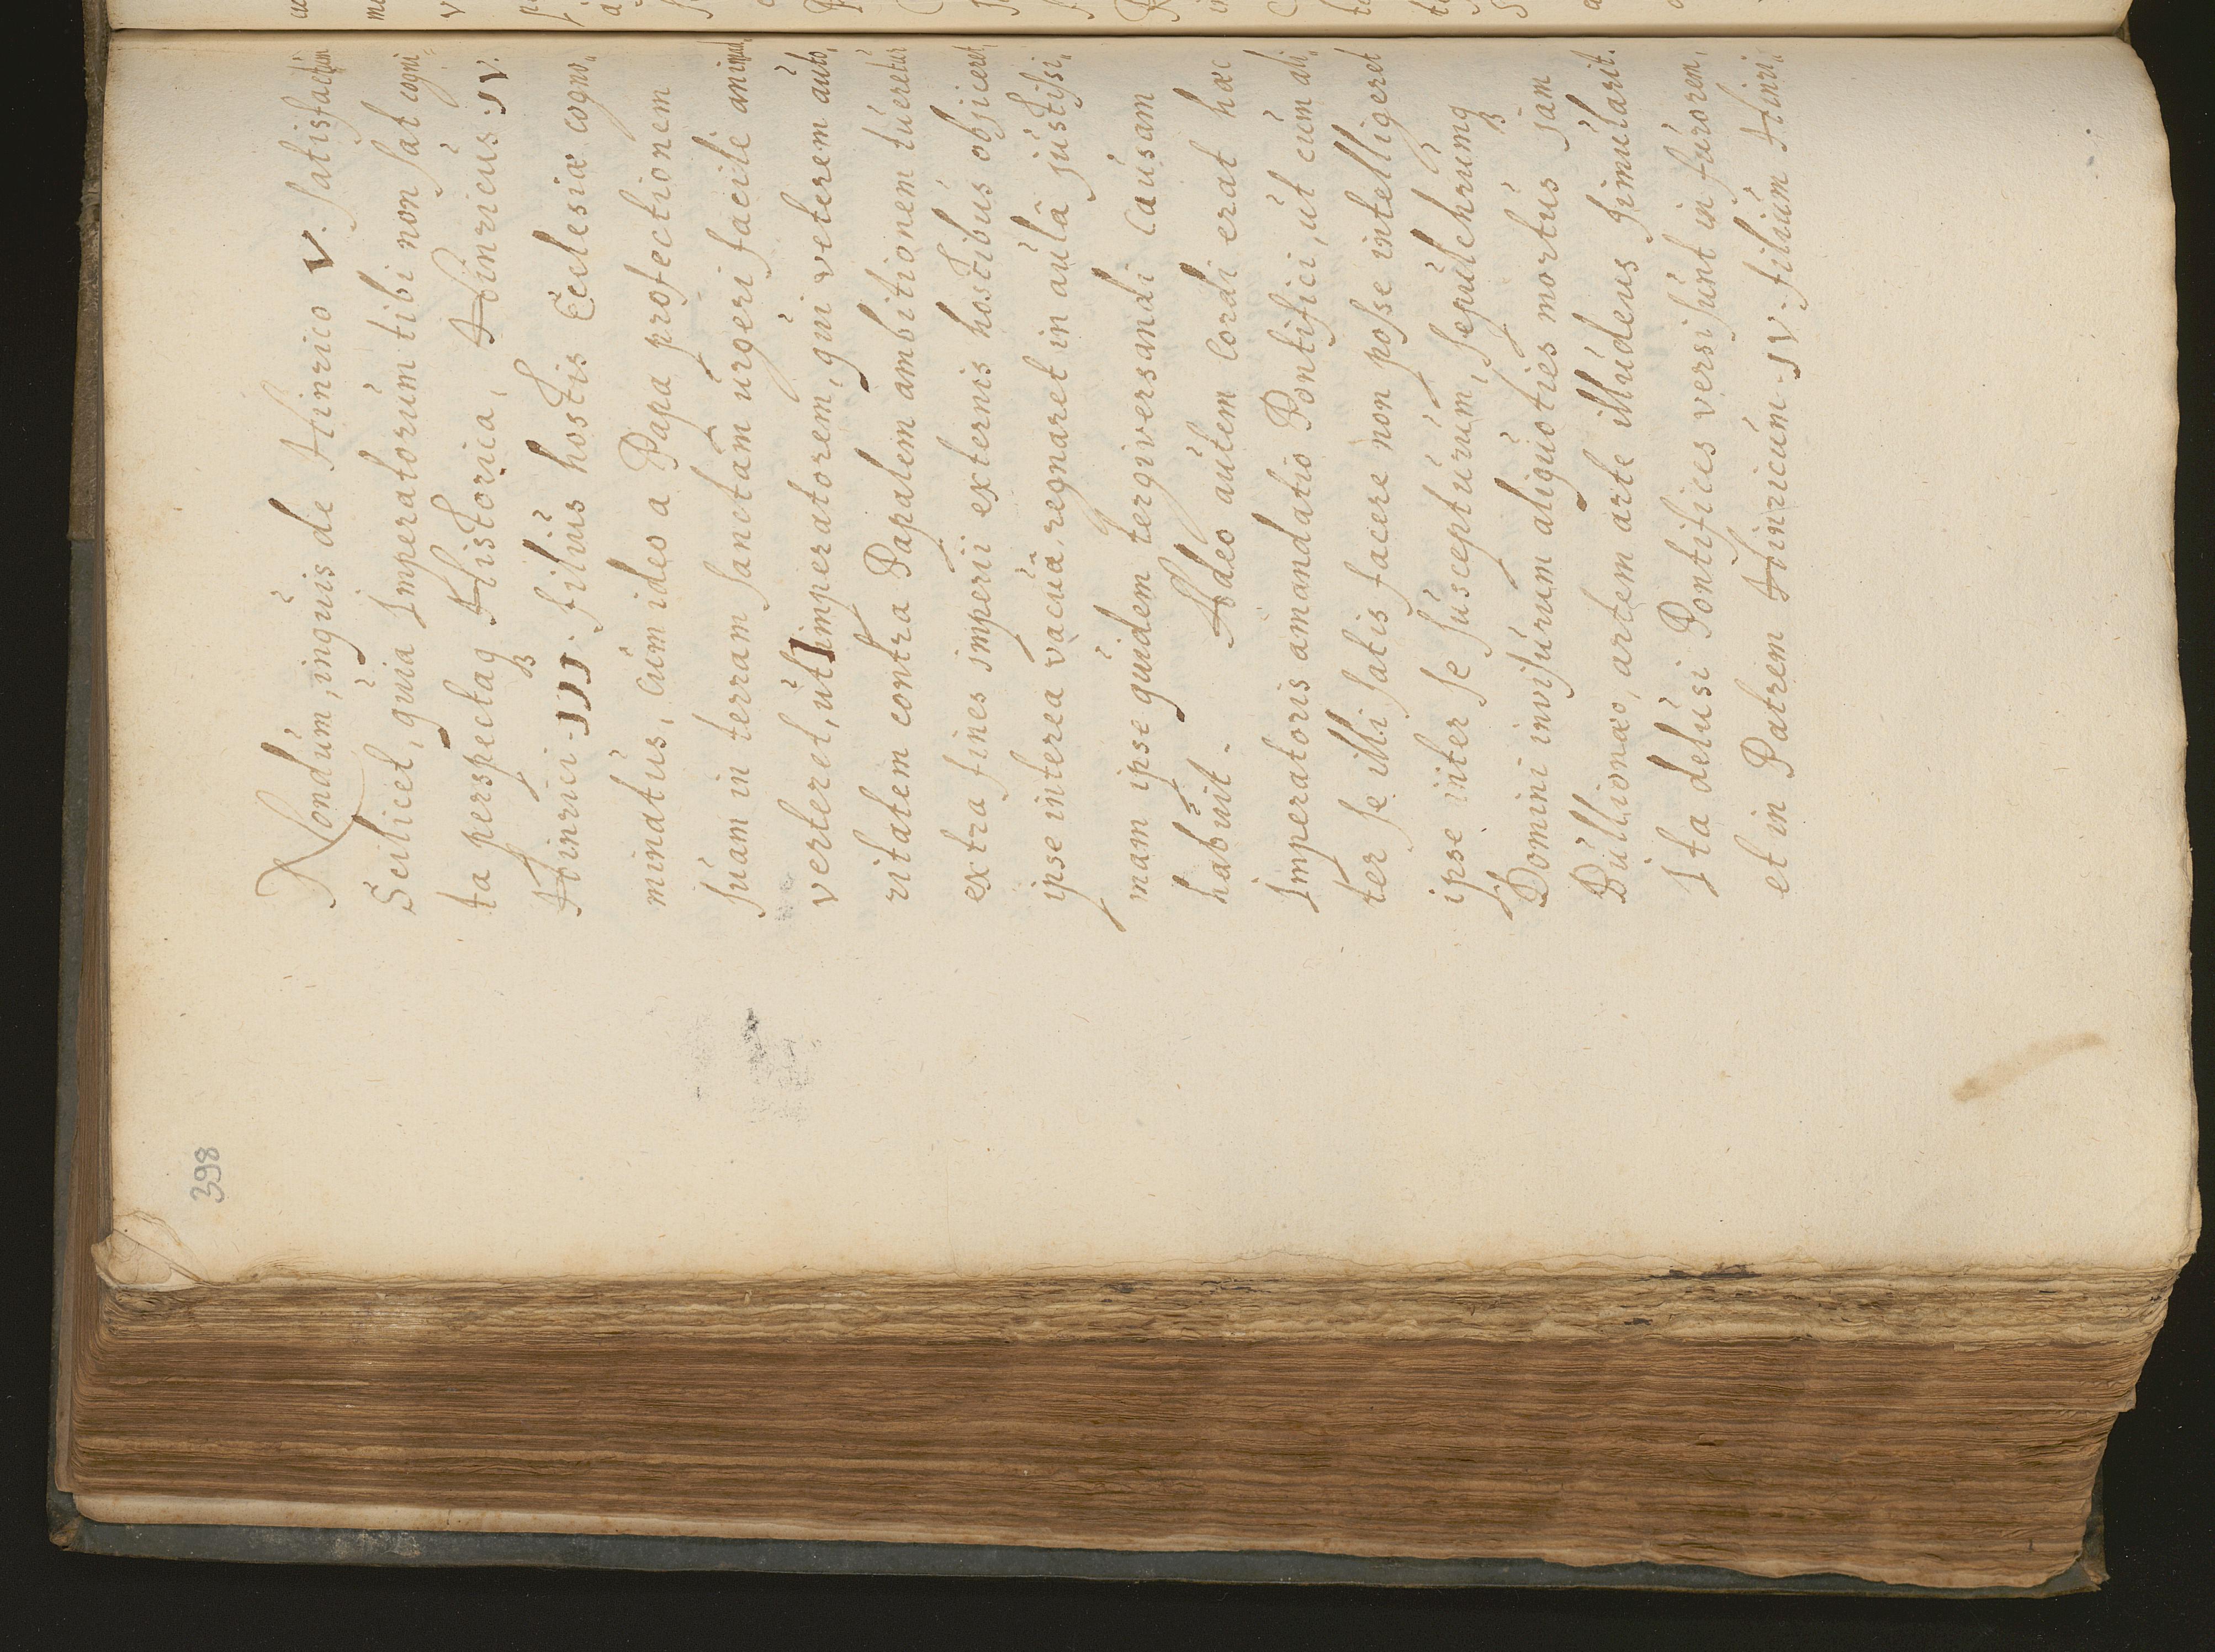 398
Nondum, inquis de Hinrico V. satisfactum
Scilicet, quia Imperatorum tibi non sat cogni,,
ta perspectaq3 Historica, Hinricus IV.
Hinrici III. filius hostis Ecclesiæ cogno,,
minatus, cum ideo a Papa profectionem
suam in terram sanctam urgeri facile animad,,
verteret, ut imperatorem, qui veterem auto,,
ritatem contra Papalem ambitionem tueretur
extra fines imperii externis hostibus objiceret,
ipse interea vacuâ regnaret in aulâ justissi,,
mam ipse quidem tergiversandi Causam
habuit. Adeo autem Cordi erat hæc
Imperatoris amandatio Pontifici, ut cum ali,,
ter se illi satis facere non posse intelligeret
ipse initer se suscepturum, sepulchrumq3
Domini invisurum aliquoties mortuus jam
Bullionæo, artem arte illudens simularit.
Ita delusi Pontifices versi sunt in furorem,
et in Patrem Hinricum IV. filium Hinri,,